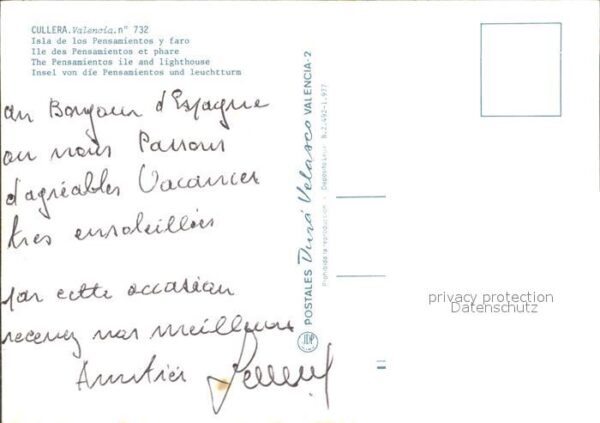 CULLERA.Valencia.n° 732
Isla de los Pensamientos y faro
Ile des Pensamientos et phare
The Pensamientos ile and lighthouse
Insel von die Pensamientos und leuchtturm
un Bonjour d'Espagne
ou nous Passons
d'agréables Vacances
très ensoleillées
par cette occasion
recevez nos meilleures
Amitiés
POSTALES Durá Velasco VALENCIA-2
Prohibida la reproducción - Depósito B-2.492-1.977
privacy protection
Datenschutz